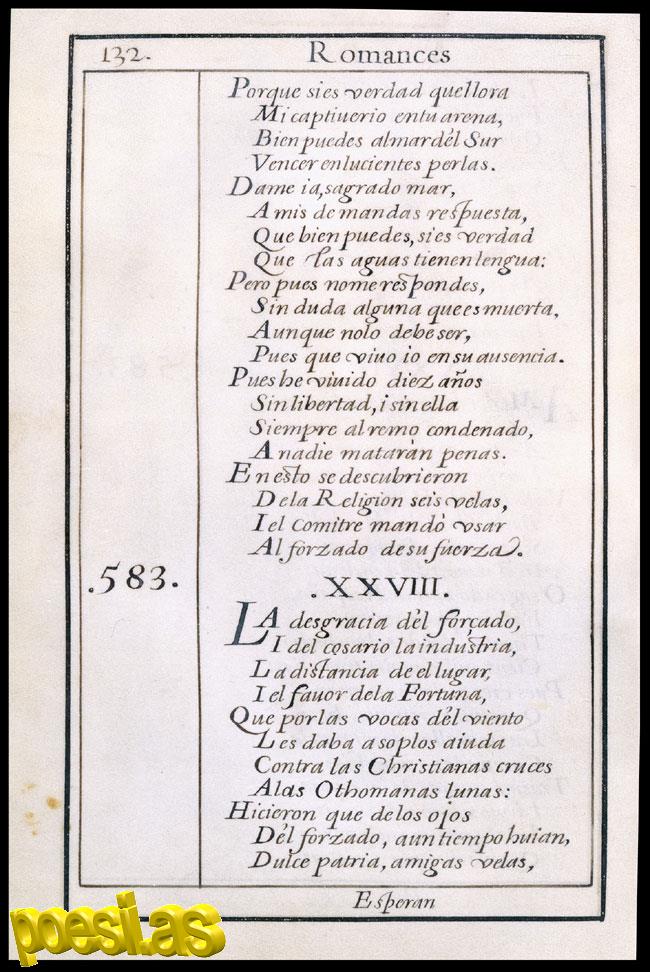 132.
Romances
Porque si es verdad que llora
Mi captiuerio en tu arena,
Bien puedes al mar dèl Sur
Vencer en lucientes perlas.
Dame ia, sagrado mar,
A mis demandas respuesta,
Que bien puedes, si es verdad
Que las aguas tienen lengua:
Pero pues no me respondes,
Sin duda alguna que es muerta,
Aunque no lo debe ser,
Pues que viuo io en su ausencia.
Pues he viuido diez años
Sin libertad, i sin ella
Siempre al remo condenado,
A nadie mataràn penas.
En esto se descubrieron
De la Religion seis velas,
I el Comitre mandò vsar
Al forzado de su fuerza.
.583.
.XXVIII.
LA desgracia dèl forçado,
I del cosario la industria,
La distancia de el lugar,
I el fauor de la Fortuna,
Que por las vocas dèl viento
Les daba a soplos aiuda
Contra las Christianas cruces
A las Othomanas lunas:
Hicieron que de los ojos
Dèl forzado, a un tiempo huian,
Dulce patria, amigas velas,
Esperan
poesi.as